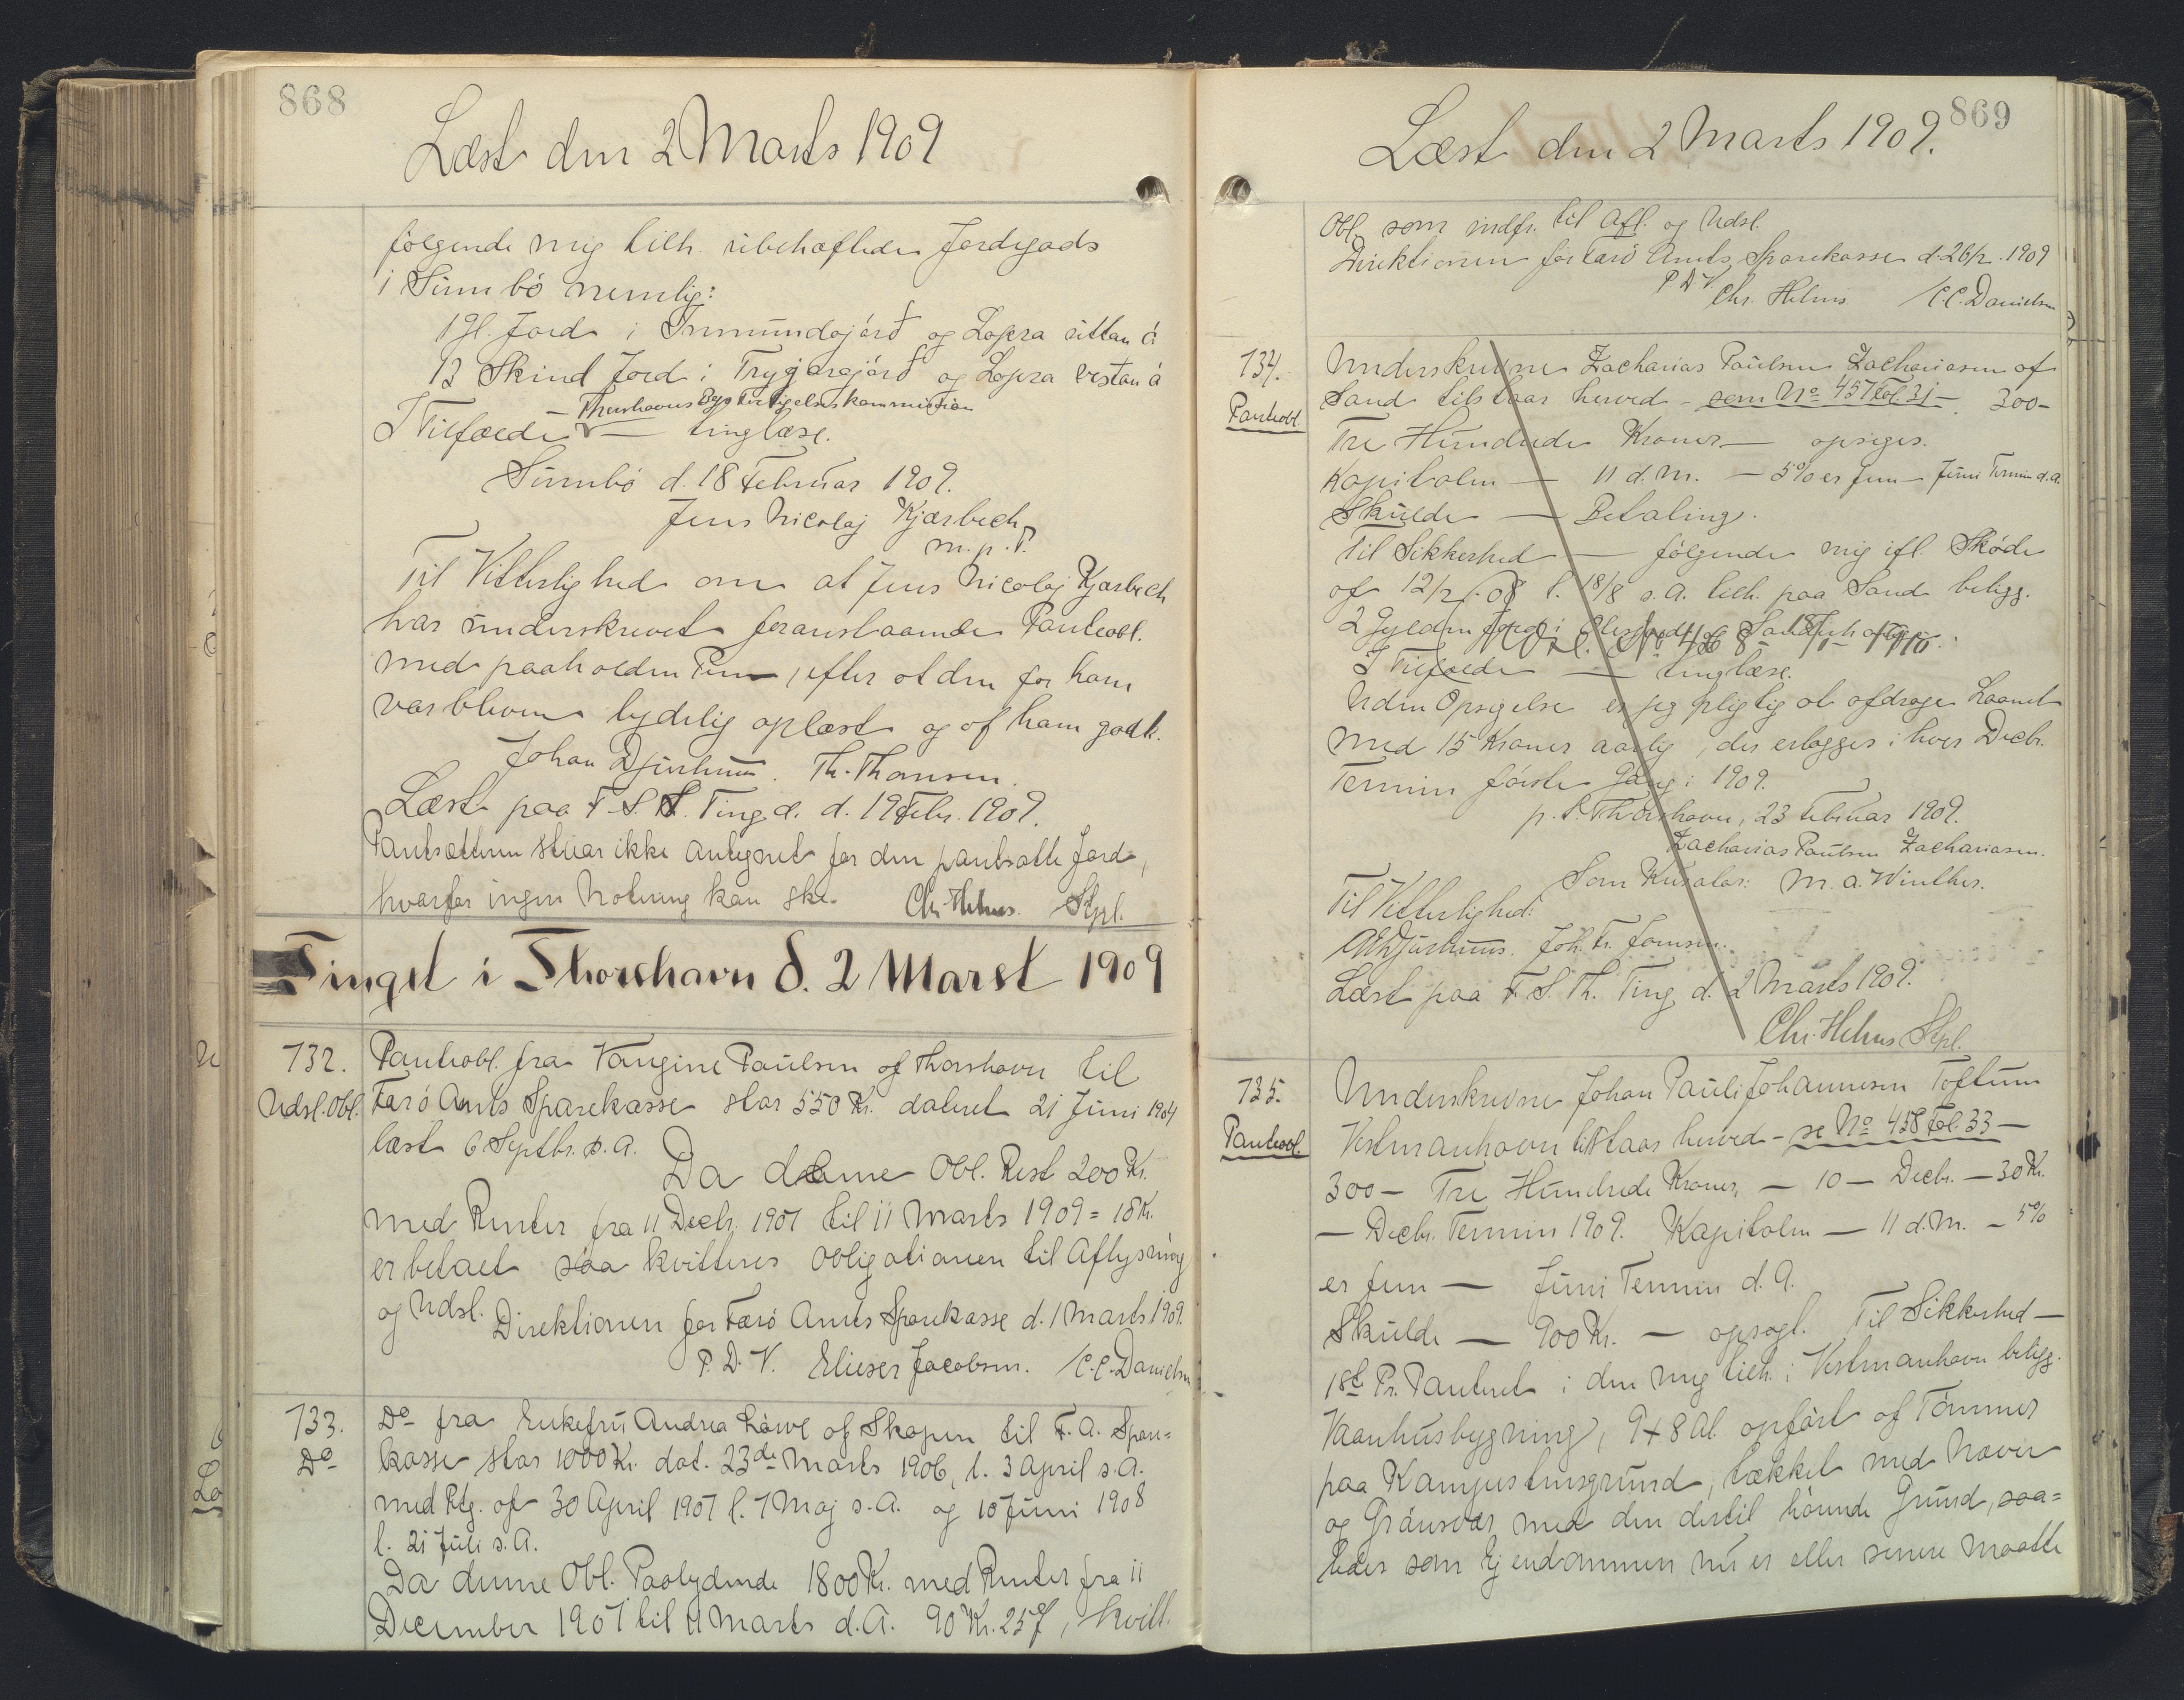 868
Læst den 2 Marts 1909
følgende mig tilh. ubehæftede Jordegods
i Sumbö nemlig:
1 Gl. Jord i Inmundajørð og Lopra uttan á
12 Skind Jord i Tryjaragjørð og Lopra vestan á
I Tilfælde — Thorshavns Bys Forligelseskommission — tinglæse.
Sumbö d. 18 Februar 1909.
Jens Nicolaj Kjærbech
m. p. P.
Til Vitterlighed om at Jens Nicolaj Kjærbech
har underskrevet foranstaaende Panteobl.
med paaholden Pen, efter at den for ham
var bleven tydelig oplæst og af ham godk.
Johan Djurhuus. Th. Thomsen.
Læst paa F. S. S. Ting d. d. 19 Febr. 1909.
Pantsætteren staar ikke antegnet for den pantsatte Jord,
hvorfor ingen Notering kan ske. Chr. Helms Stpl.
Tinget i Thorshavn d. 2 Marst 1909
732.
Udsl. Obl.
Panteobl. fra Vangine Paulsen af Thorshavn til
Færö Amts Sparekasse stor 550 Kr. dateret 21 Juni 1904
læst 6 Septbr. s. A.
Da denne Obl. Rest 200 Kr.
med Renter fra 11 Decbr. 1907 til 11 Marts 1909 = 18 Kr.
er betalt saa kvitteres Obligationen til Aflysning
og Udsl.
Direktionen for Færö Amts Sparekasse d. 1 Marts 1909.
P. D. V. Elieser Jacobsen. C. C. Danielsen
733.
Do
Do fra Enkefru Andrea Löwe af Skopen til F. A. Spare=
kasse stor 1000 Kr. dat. 23de Marts 1906, l. 3 April s. A.
med Ptg. af 30 April 1907 l. 7 Maj s. A. og 10 Juni 1908
l. 21 Juli s. A.
Da denne Obl. Paalydende 1800 Kr. med Renter fra 11
December 1907 til 11 Marts d. A. 90 Kr. 25 Ø, kvitt.
869
Læst den 2 Marts 1909.
Obl. som indfr. til Afl. og Udsl.
Direktionen for Færö Amts Sparekasse d. 26/2. 1909
P. D. V.
Chr. Helms C. C. Danielsen
734.
Panteobl.
Underskrevne Zacharias Paulsen Zachariasen af
Sand tilstaar herved - som No 457 Fol. 31 — 300-
Tre Hundrede Kroner — opsiges.
Kapitalen — 11 d. M. — 5% er fem — Juni Termin d. A.
Skulde — Betaling.
Til Sikkerhed — følgende mig ifl. Sköde
af 12/2 08 l. 18/8 s. A. tilh. paa Sand beligg.
2 Gylden Jord i
I Tilfælde — tinglæse.
Uden Opsigelse er jeg pligtig at afdrage Laanet
med 15 Kroner aarlig, der erlægges i hver Decbr.
Termin første Gang i 1909.
p. t. Thorshavn, 23 Februar 1909.
Zacharias Paulsen Zachariasen.
Som Kurator: M. A. Winther.
Til Vitterlighed:
Djurhuus. Joh. Fr. Joensen.
Læst paa F. S. Th. Ting d. 2 Marts 1909.
Chr. Helms Stpl.
735.
Panteobl.
Underskrevne Johan Pauli Johannesen Toftum
Vestmanhavn tilstaar herved - se No 458 Fol. 33 —
300 — Tre Hundrede Kroner, — 10 — Decbr. — 30 Kr.
— Decbr. Termin 1909. Kapitalen — 11 d. M. — 5%
er fem — Juni Termin d. A.
Skulde — 900 Kr. — opsagt. Til Sikkerhed —
1ste Pr. Panteret i den mig tilh. i Vestmanhavn beligg.
Vaanhusbygning, 9 x 8 Al. opført af Tömmer
paa Kampestensgrund, tækket med Næver
og Grönsvær, med den dertil hörende Grund, saa=
ledes som Ejendommen nu er eller senere maatte